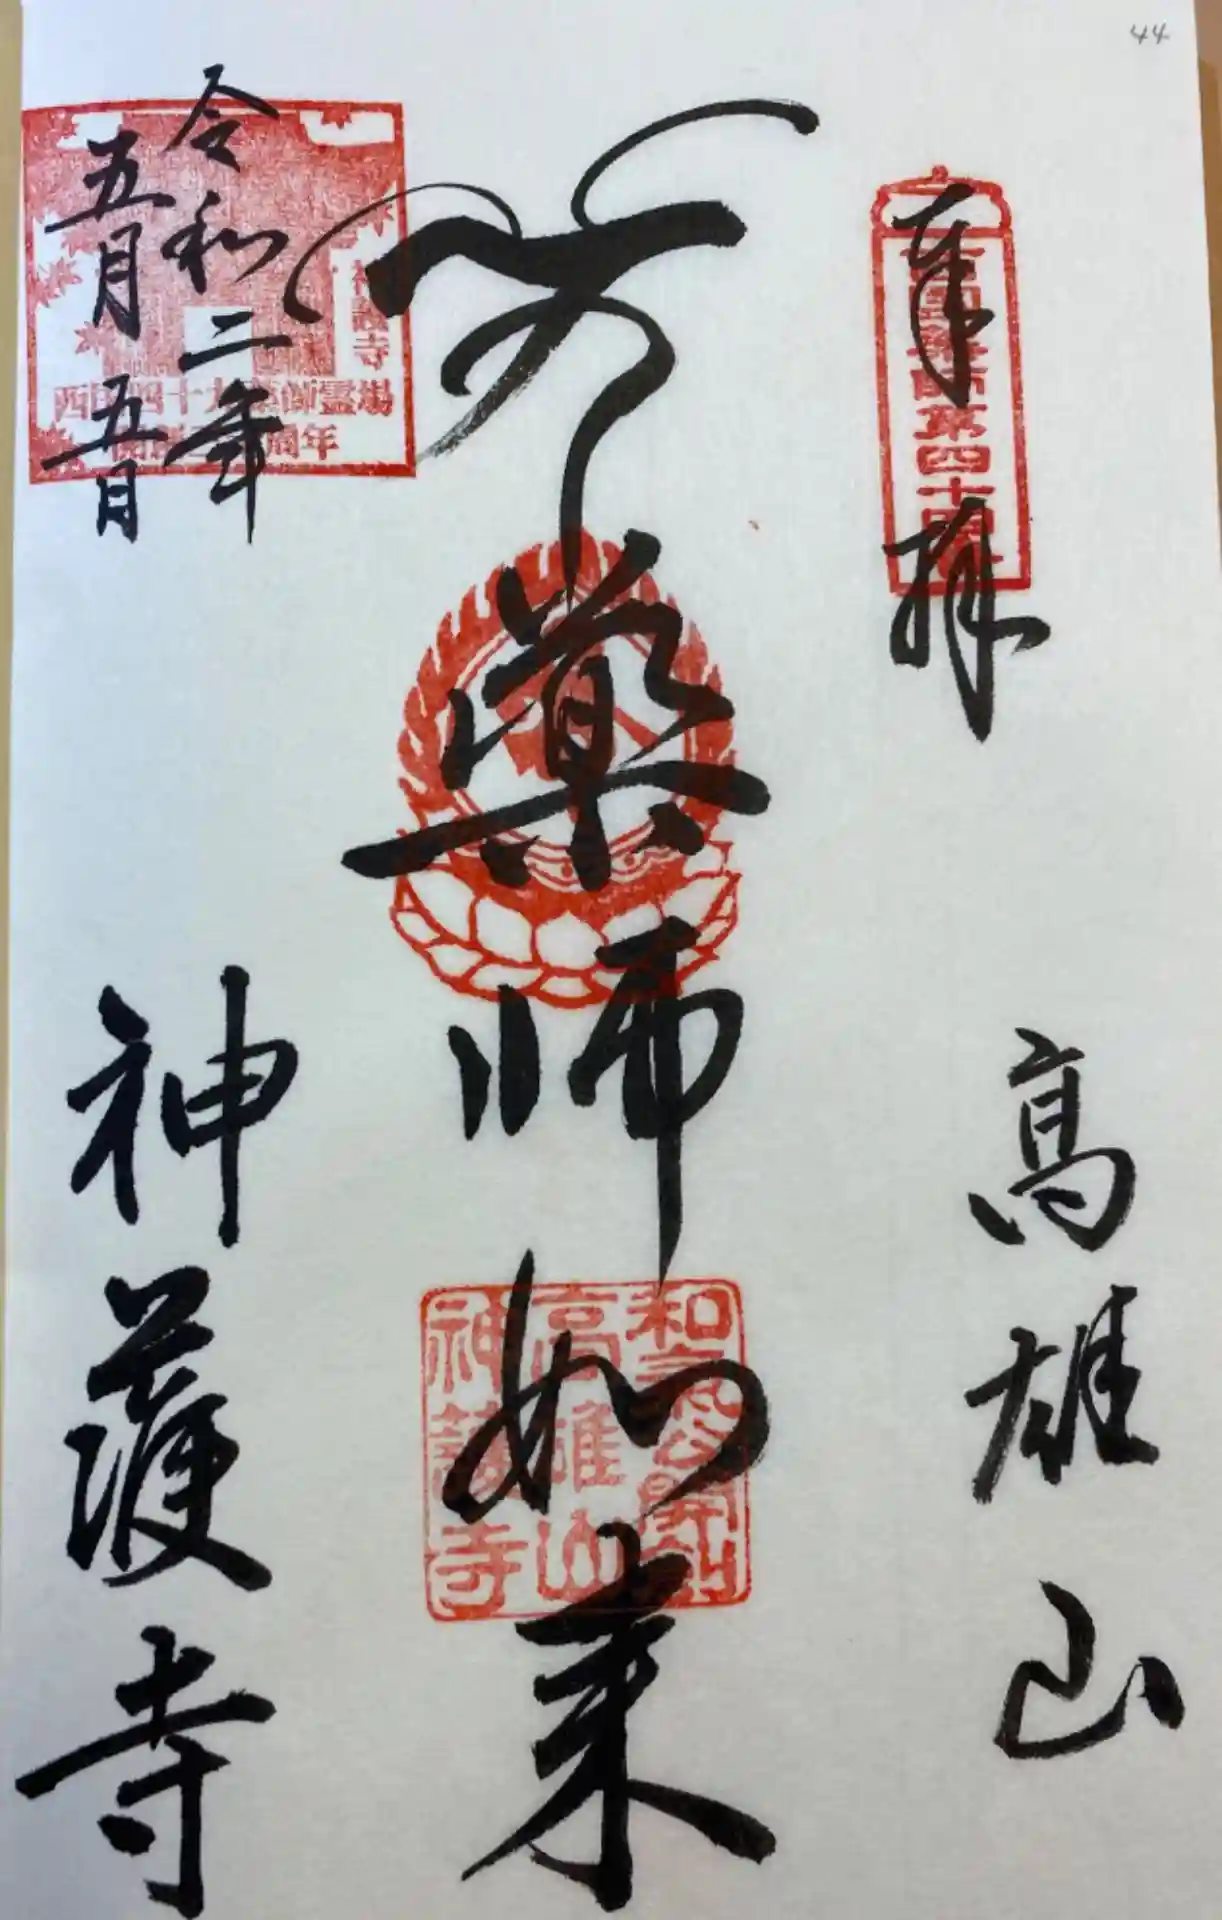 44
奉拝
西国薬師第四十四番
高雄山
薬師如来
和気公開創
高雄山
神護寺
令和二年
五月五日
神護寺
西国四十九薬師霊場
神護寺